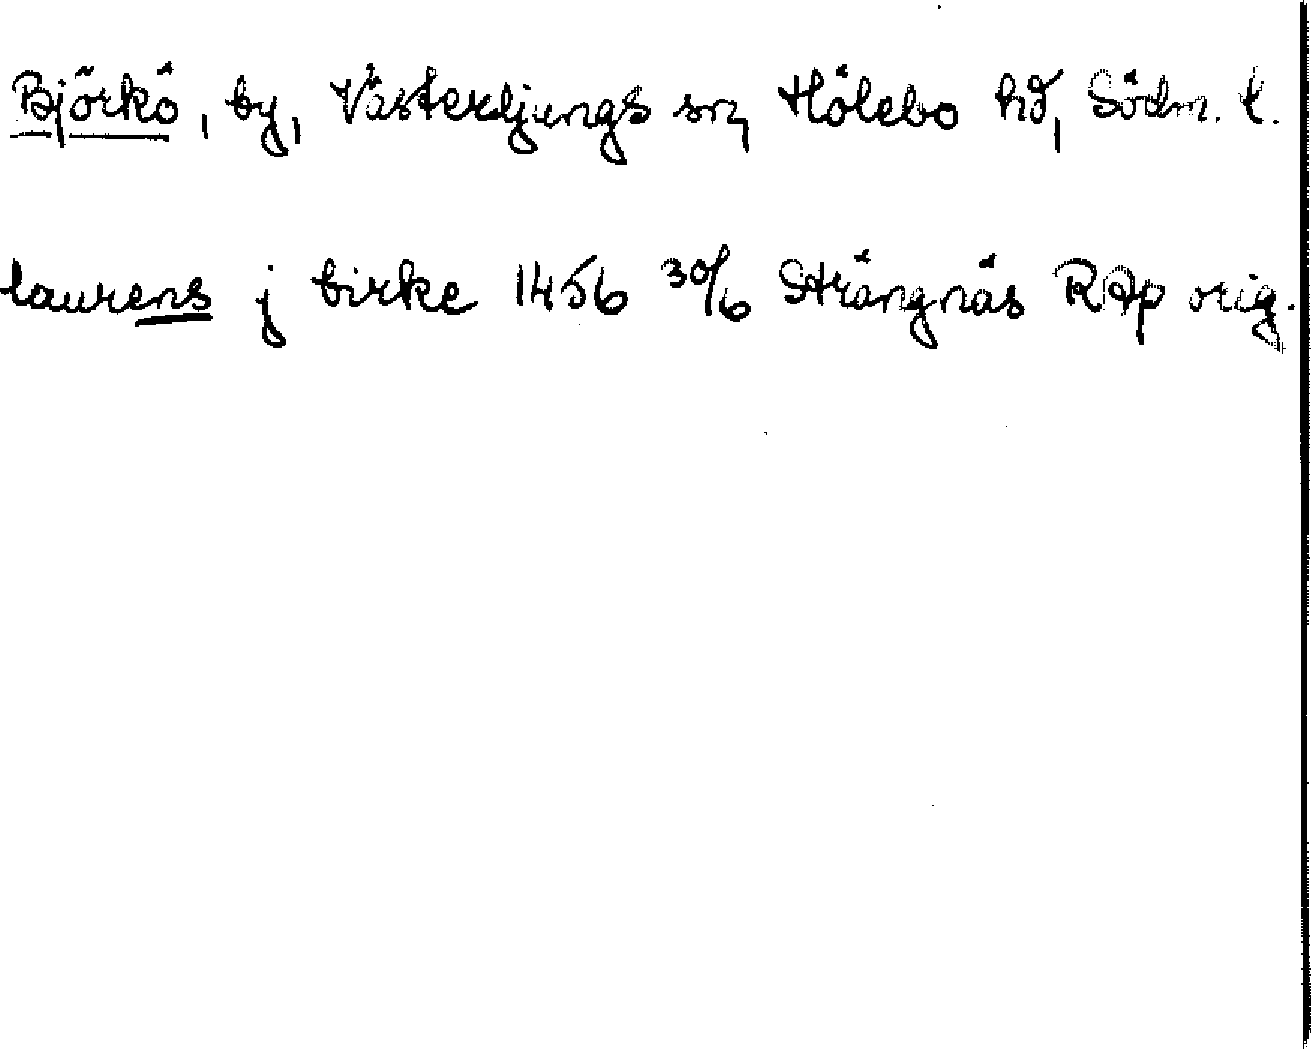 Björkö, by, Västerljungs sn, Hölebo hd, Södm. l.
laurens j birke 1456 30/6 Strängnäs RAp orig.